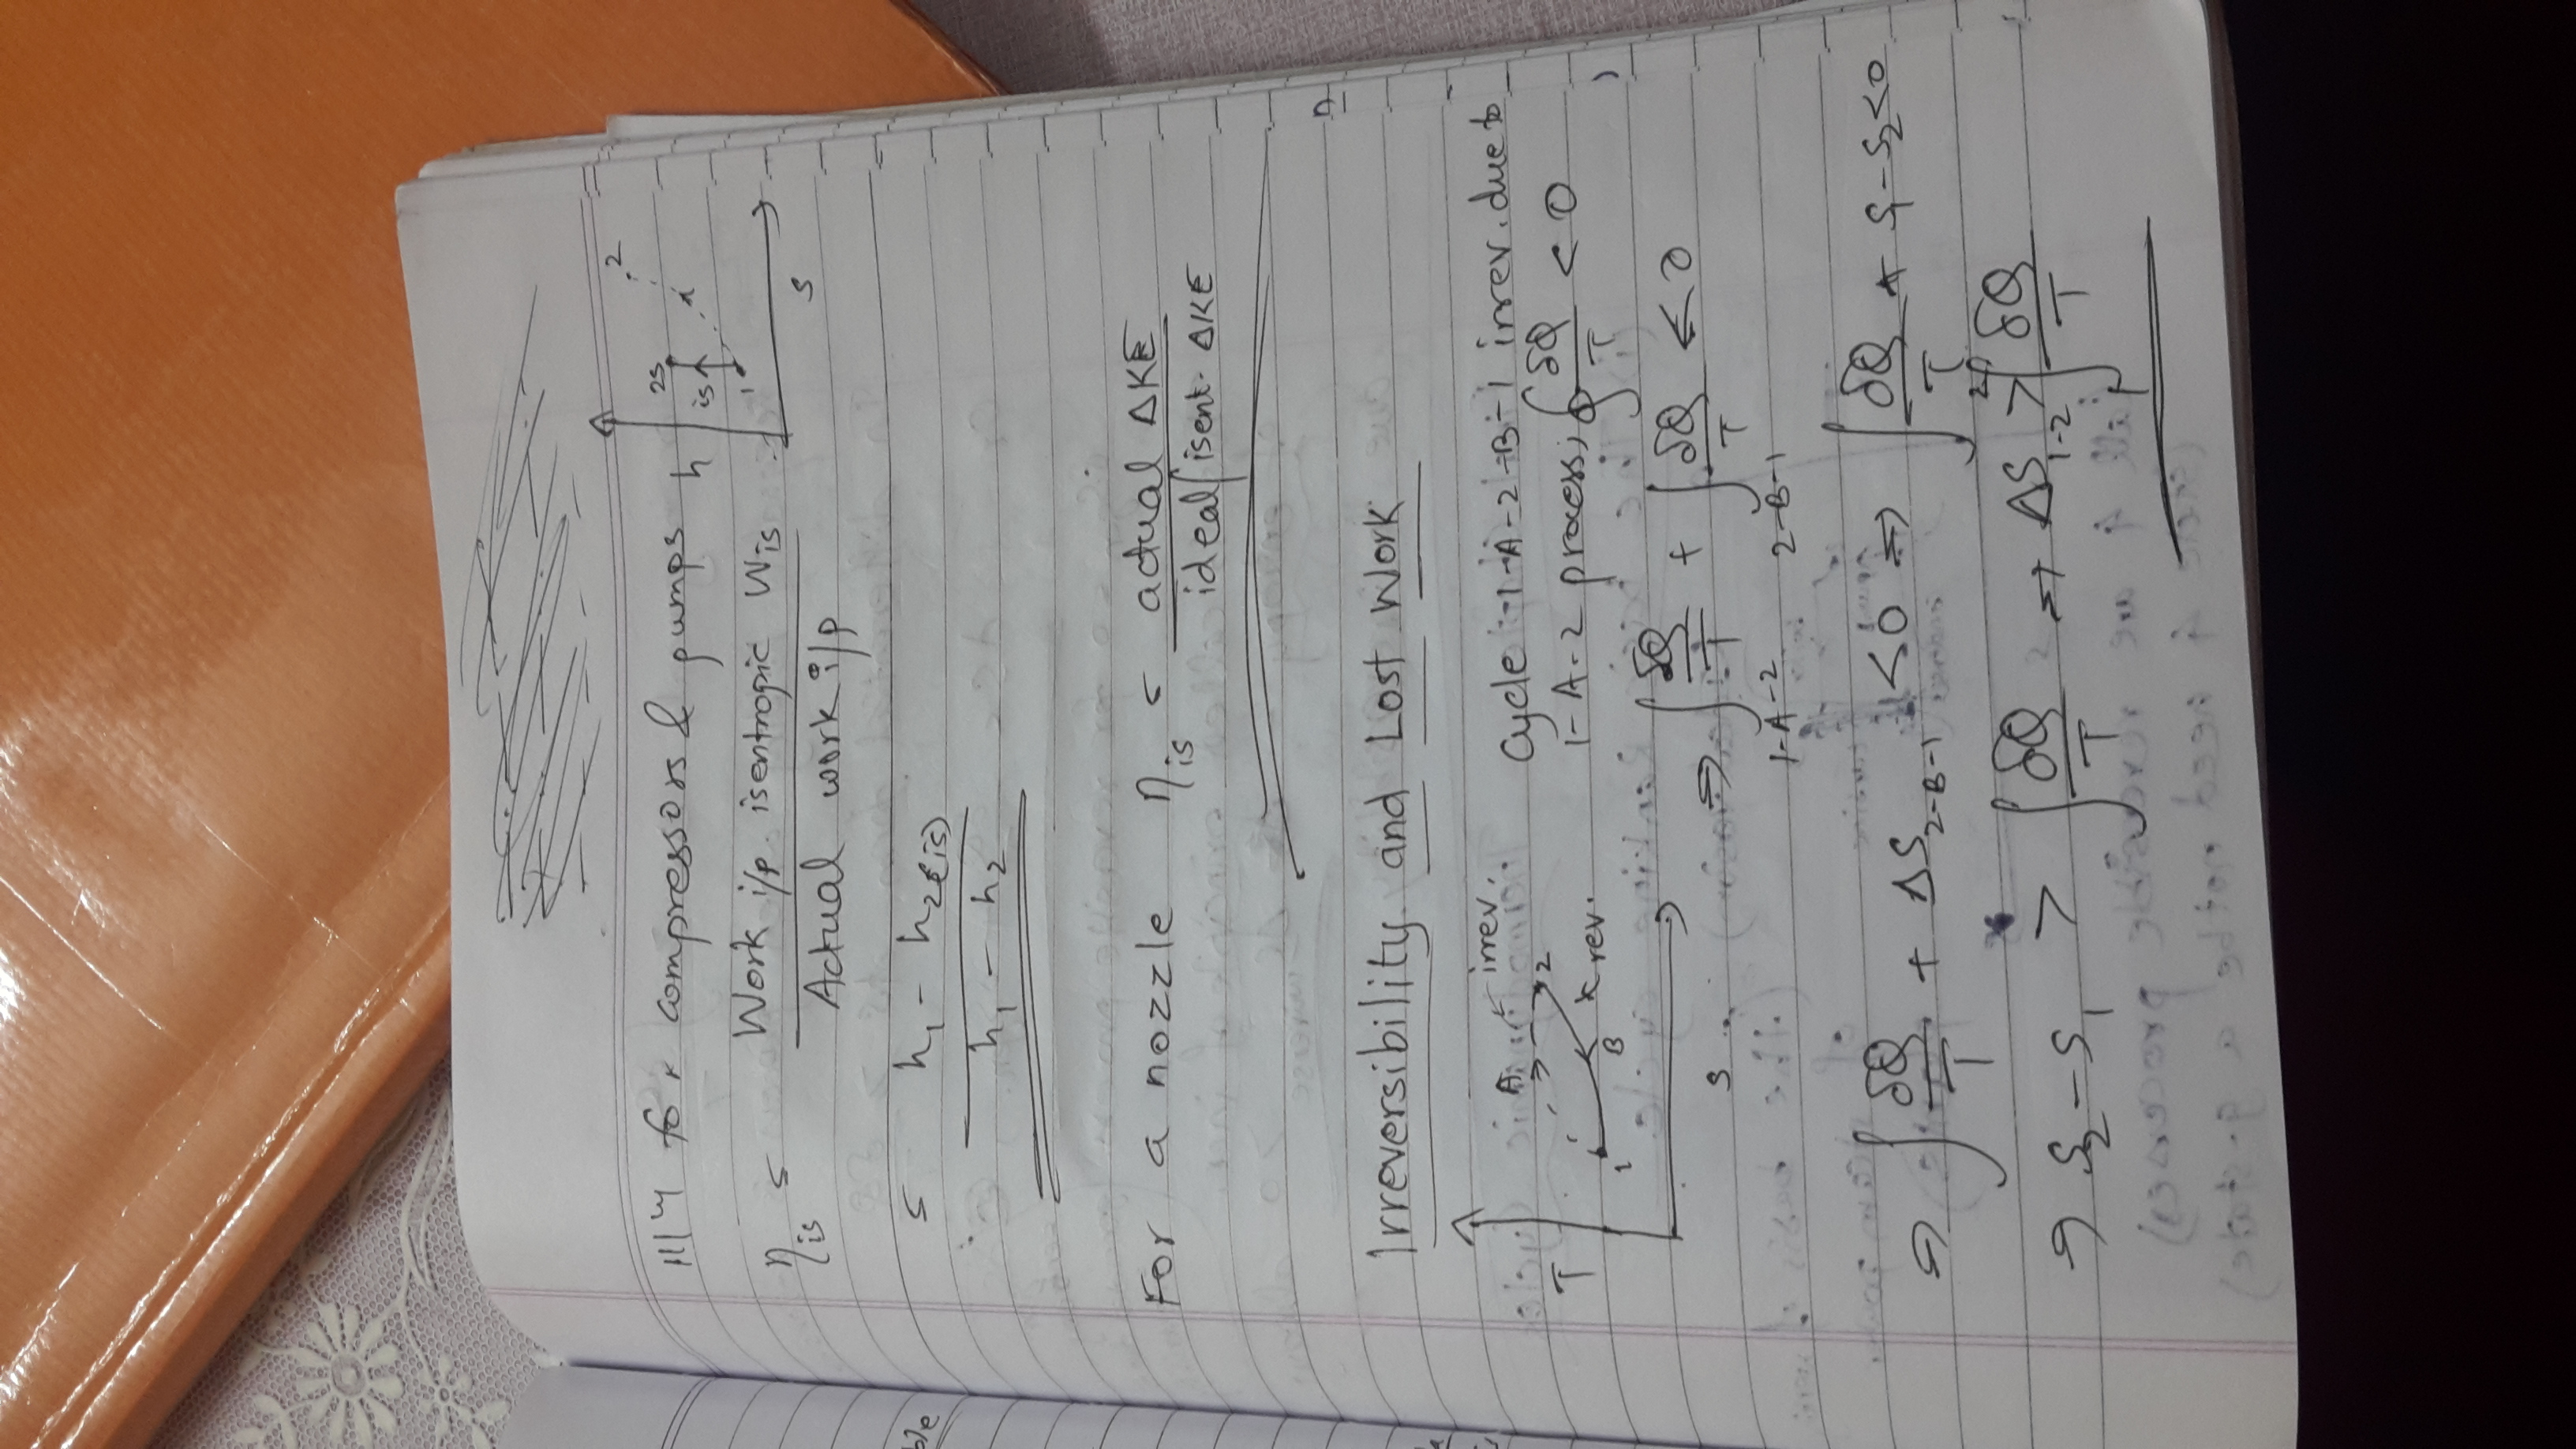 |||ly for compressors & pumps
h
2
2s
is
1
s
η_is = Work i/p isentropic W_is / Actual work i/p
= h₁ - h₂(is) / h₁ - h₂
For a nozzle η_is = actual ΔKE / ideal/isent. ΔKE
Irreversibility and Lost Work
T
A
irrev.
2
rev.
1
B
s
Cycle 1-A-2-B-1 irrev. due to
1-A-2 process, ∮ δQ/T < 0
⇒ ∫ δQ/T + ∫ δQ/T < 0
1-A-2 2-B-1
⇒ ∫ δQ/T + ΔS₂₋B₋₁ < 0 ⇒ ∫ δQ/T + S₁ - S₂ < 0
⇒ S₂ - S₁ > ∫ δQ/T ⇒ ΔS₁₋₂ > ∫₁² δQ/T